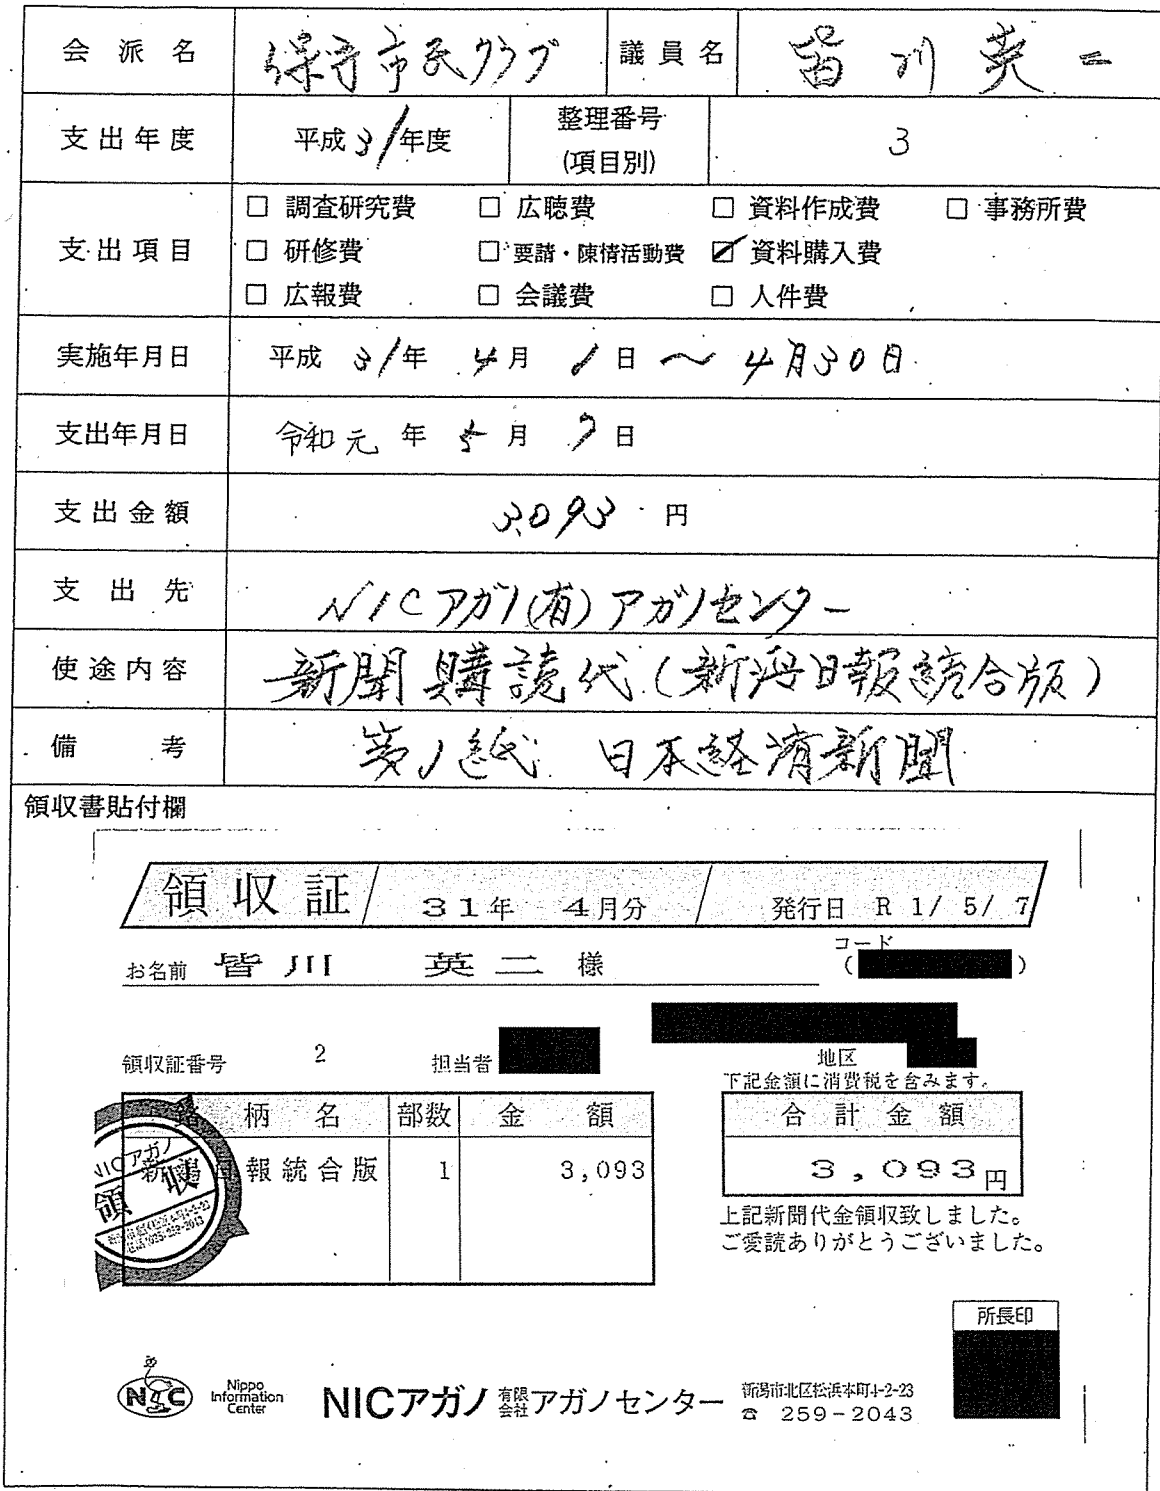 会派名 保守市民クラブ 議員名 皆川英二
支出年度 平成31年度 整理番号(項目別) 3
支出項目
□ 調査研究費 □ 広聴費 □ 資料作成費 □ 事務所費
□ 研修費 □ 要請・陳情活動費 ☑ 資料購入費
□ 広報費 □ 会議費 □ 人件費
実施年月日 平成 31年 4月 1日 〜 4月30日
支出年月日 令和元年 5月 7日
支出金額 3,093 円
支出先 NICアガノ(有)アガノセンター
使途内容 新聞購読代(新潟日報統合版)
備考 第1紙 日本経済新聞
領収書貼付欄
領収証 31年 4月分 発行日 R 1/ 5/ 7
コード
お名前 皆川 英二 様 ( )
領収証番号 2 担当者 地区
下記金額に消費税を含みます。
銘柄名 部数 金額 合計金額
新潟日報統合版 1 3,093 3,093円
NICアガノ
領収
上記新聞代金領収致しました。
ご愛読ありがとうございました。
所長印
NIC Nippo Information Center NICアガノ 有限会社 アガノセンター 新潟市北区松浜本町4-2-23
☎ 259-2043